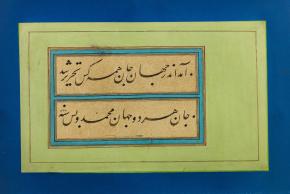 آمد اندر جهان جان هر کس تحریر شد
جان هر دو جهان محمد و بس سنه